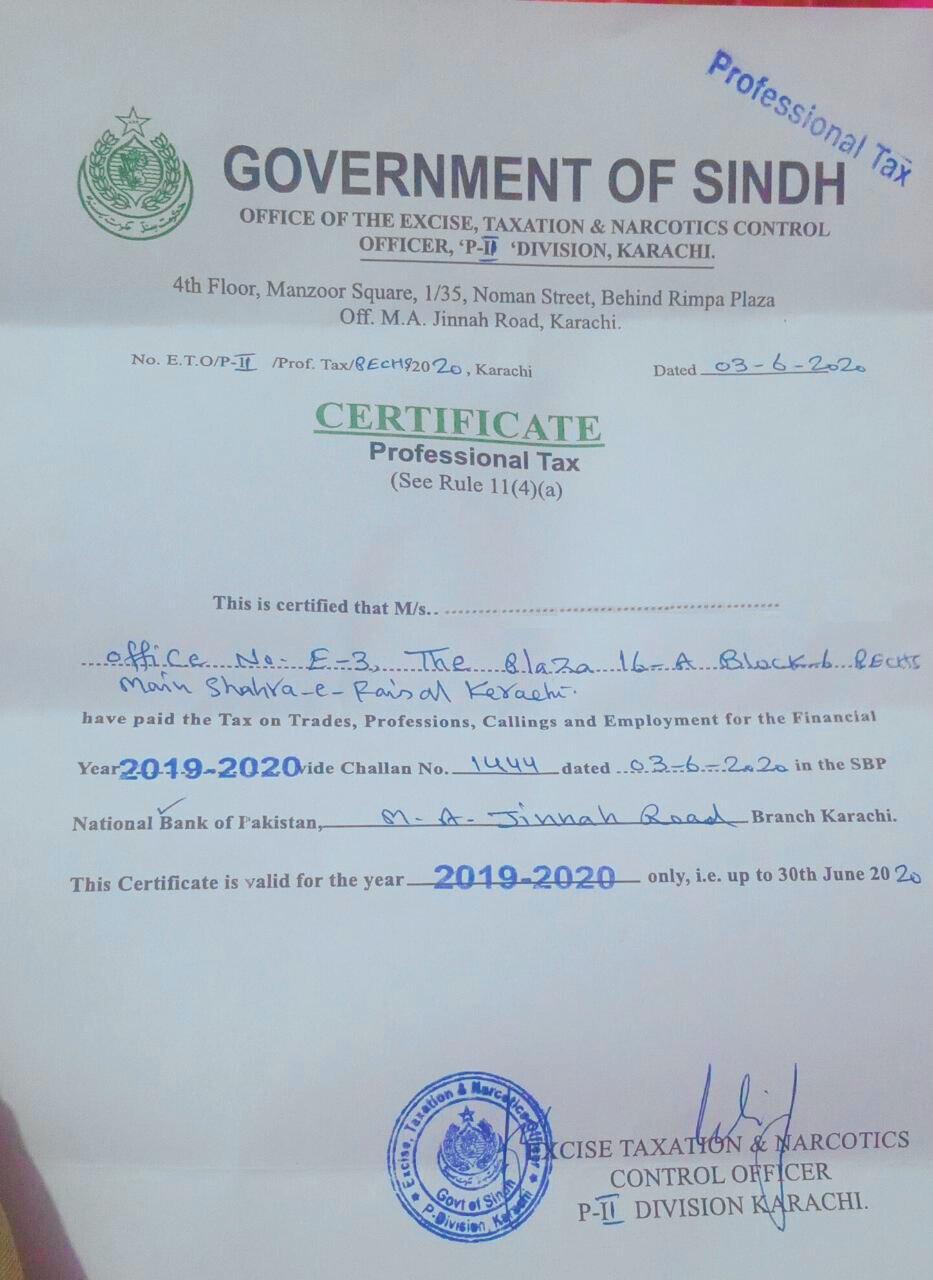 Professional Tax
GOVERNMENT OF SINDH
OFFICE OF THE EXCISE, TAXATION & NARCOTICS CONTROL
OFFICER, ‘P-II ‘DIVISION, KARACHI.
4th Floor, Manzoor Square, 1/35, Noman Street, Behind Rimpa Plaza
Off. M.A. Jinnah Road, Karachi.
No. E.T.O/P-II /Prof. Tax/PECHS2020, Karachi Dated 03-6-2020
CERTIFICATE
Professional Tax
(See Rule 11(4)(a)
This is certified that M/s..
office No- E-3, The Plaza 16-A Block-6 PECHS
Main Shahra-e-Faisal Karachi.
have paid the Tax on Trades, Professions, Callings and Employment for the Financial
Year 2019-2020 vide Challan No. 1444 dated 03-6-2020 in the SBP
National Bank of Pakistan, M-A-Jinnah Road Branch Karachi.
This Certificate is valid for the year 2019-2020 only, i.e. up to 30th June 2020
Excise, Taxation & Narcotics Officer
Govt of Sindh
P-Division, Karachi
EXCISE TAXATION & NARCOTICS
CONTROL OFFICER
P-II DIVISION KARACHI.